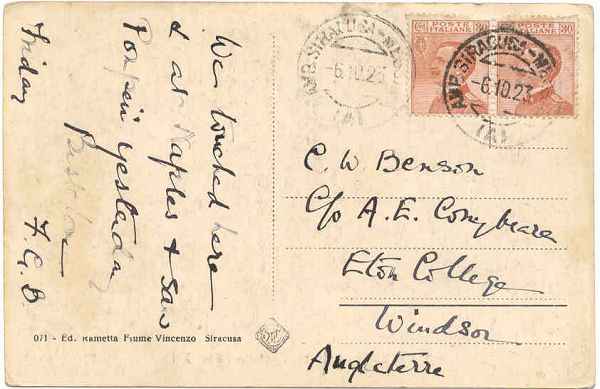 We touched here
& at Naples & saw
Pompeii yesterday
Best love
Friday F.G.B.
AMB. SIRACUSA-NA
-6.10.23
(A)
POSTE ITALIANE 30
POSTE ITALIANE 30
AMB. SIRACUSA-NA
-6.10.23
(A)
C. W. Benson
C/o A. E. Conybeare
Eton College
Windsor
Angleterre
071 - Ed. Rametta Fiume Vincenzo Siracusa